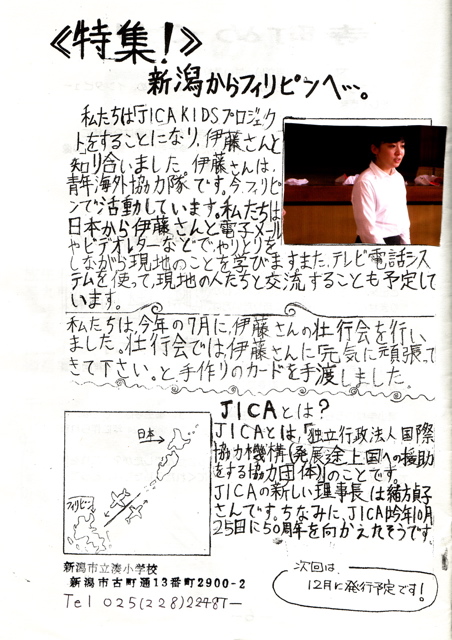 《特集！》
新潟からフィリピンへ…。
私たちは「JICA KIDSプロジェク
ト」をすることになり、伊藤さんと
知り合いました。伊藤さんは、
青年海外協力隊です。今、フィリピ
ンで活動しています。私たちは
日本から伊藤さんと電子メール
やビデオレターなどでやりとりを
しながら現地のことを学びます。また、テレビ電話シス
テムを使って、現地の人たちと交流することも予定して
います。
私たちは、今年の7月に、伊藤さんの壮行会を行い
ました。壮行会では、伊藤さんに「元気に頑張って
きて下さい。」と、手作りのカードを手渡しました。
JICAとは？
JICAとは、「独立行政法人国際
協力機構(発展途上国への援助
をする協力団体)」のことです。
JICAの新しい理事長は緒方貞子
さんです。ちなみに、JICAは今年10月
25日に50周年を向かえたそうです。
日本
フィリピン
新潟市立湊小学校
新潟市古町通13番町2900-2
Tel 025(228)2248
次回は、
12月に発行予定です！